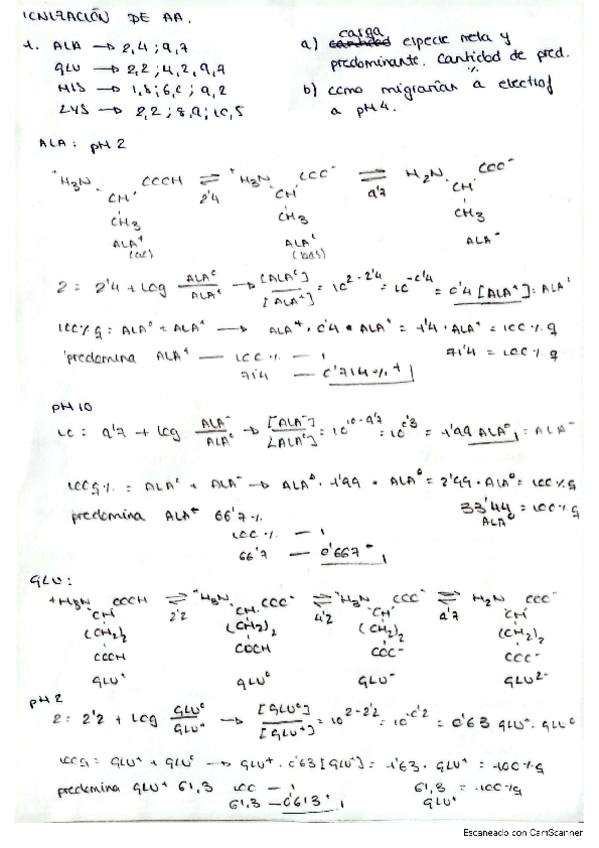 IONIZACIÓN DE AA.
1. ALA → 2,4 ; 9,7
GLU → 2,2 ; 4,2 ; 9,7
HIS → 1,8 ; 6,0 ; 9,2
LYS → 2,2 ; 8,9 ; 10,5
a) carga cantidad especie neta y
predominante. Cantidad de pred. %
b) como migrarían a electrof
a pH 4.
ALA: pH 2
⁺H₃N COOH ⇌ ⁺H₃N COO⁻ ⇌ H₂N COO⁻
CH 2'4 CH 9'7 CH
CH₃ CH₃ CH₃
ALA⁺ ALA⁰ ALA⁻
(ac) (bas)
2 = 2'4 + log ALA⁰/ALA⁺ → [ALA⁰]/[ALA⁺] = 10^2-2'4 = 10^-0'4 = 0'4 [ALA⁺] = ALA⁰
100%g = ALA⁰ + ALA⁺ → ALA⁺ · 0'4 + ALA⁺ = 1'4 · ALA⁺ = 100 % g
predomina ALA⁺ — 100 % — 1 71'4 = 100 % g
71'4 — 0'714 % +
pH 10
10 = 9'7 + log ALA⁻/ALA⁰ → [ALA⁻]/[ALA⁰] = 10^10-9'7 = 10^0'3 = 1'99 ALA⁰ = ALA⁻
100g% = ALA⁰ + ALA⁻ → ALA⁰ · 1'99 + ALA⁰ = 2'99 · ALA⁰ = 100 % g
predomina 66'7 % 33'44 = 100 % g
100 % — 1 ALA⁰
66'7 — 0'667⁻
GLU:
⁺H₃N COOH ⇌ ⁺H₃N COO⁻ ⇌ ⁺H₃N COO⁻ ⇌ H₂N COO⁻
CH 2'2 CH 4'2 CH 9'7 CH
(CH₂)₂ (CH₂)₂ (CH₂)₂ (CH₂)₂
COOH COOH COO⁻ COO⁻
GLU⁺ GLU⁰ GLU⁻ GLU²⁻
pH 2
2 = 2'2 + log GLU⁰/GLU⁺ → [GLU⁰]/[GLU⁺] = 10^2-2'2 = 10^-0'2 = 0'63 GLU⁺ = GLU⁰
100g = GLU⁺ + GLU⁰ → GLU⁺ · 0'63 [GLU⁺] = 1'63 · GLU⁺ = 100 % g
predomina GLU⁺ 61,3 100 — 1 61,3 = 100 % g
61,3 — 0'613⁺ GLU⁺
Escaneado con CamScanner